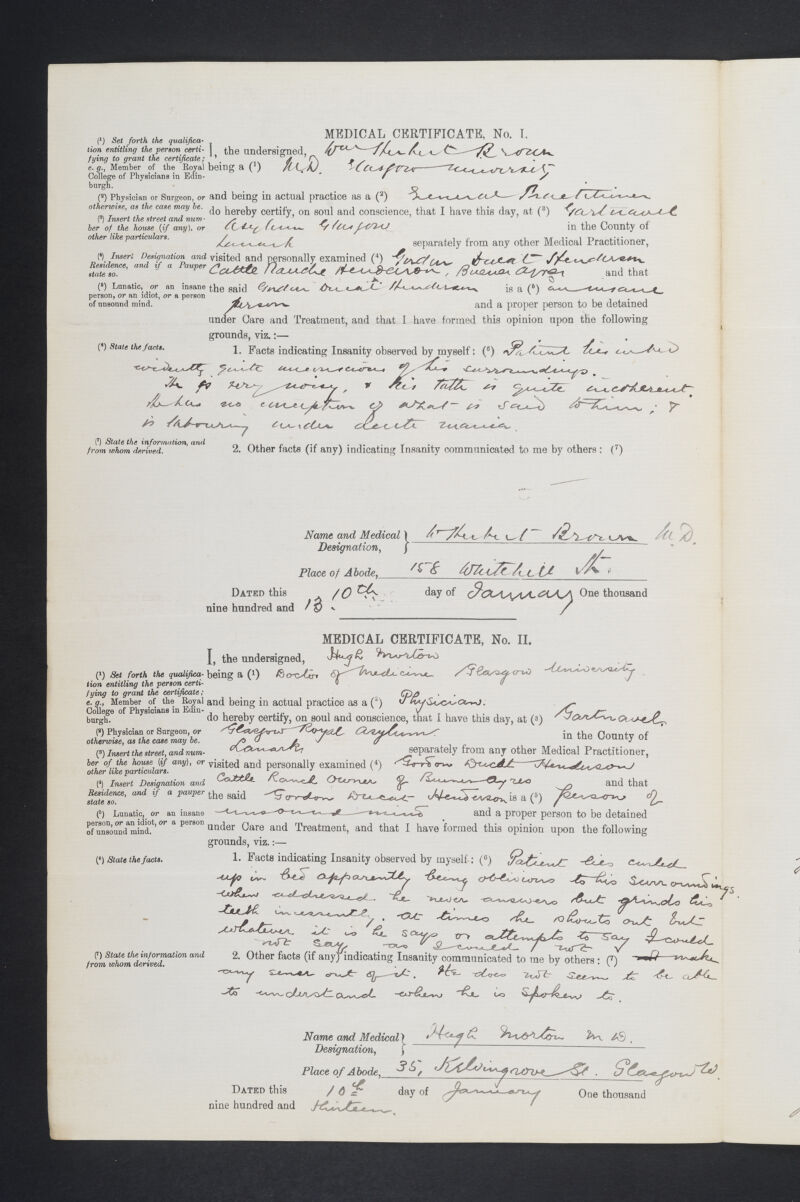 MEDICAL CERTIFICATE, No. I.
(¹) Set forth the qualifica-
tion entitling the person certi-
fying to grant the certificate;
e. g., Member of the Royal
College of Physicians in Edin-
burgh.
I, the undersigned, Wm Herbert Brown
being a (¹) M.D. Glasgow University
(²) Physician or Surgeon, or
otherwise, as the case may be.
and being in actual practice as a (²) General Practitioner
(³) Insert the street and num-
ber of the house (if any), or
other like particulars.
do hereby certify, on soul and conscience, that I have this day, at (³) Gartnavel
Asylum Glasgow in the County of
Lanark separately from any other Medical Practitioner,
(⁴) Insert Designation and
Residence, and if a Pauper
state so.
visited and personally examined (⁴) Gordon Ducat Henderson
Cattle Ranche Henderson, Buenos Ayres and that
(⁵) Lunatic, or an insane
person, or an idiot, or a person
of unsound mind.
the said Gordon Ducat Henderson is a (⁵) an insane
person and a proper person to be detained
under Care and Treatment, and that I have formed this opinion upon the following
grounds, viz.:—
(⁶) State the facts.
1. Facts indicating Insanity observed by myself: (⁶) Patient lies in bed
evidently quite unconscious of his surroundings.
He is very noisy, & his talk is quite incoherent.
He has no conception of what is said to him; &
is labouring under acute mania.
(⁷) State the information, and
from whom derived.
2. Other facts (if any) indicating Insanity communicated to me by others: (⁷)
Name and Medical Designation, W Herbert Brown M.D.
Place of Abode, 158 Whitehill St.
DATED this 10th day of January One thousand
nine hundred and 13.
MEDICAL CERTIFICATE, No. II.
I, the undersigned, Hugh Morton
(¹) Set forth the qualifica-
tion entitling the person certi-
fying to grant the certificate;
e. g., Member of the Royal
College of Physicians in Edin-
burgh.
being a (¹) Doctor of Medicine Glasgow University
and being in actual practice as a (²) Physician.
(²) Physician or Surgeon, or
otherwise, as the case may be.
do hereby certify, on soul and conscience, that I have this day, at (³) Gartnavel,
Glasgow Royal Asylum in the County of
(³) Insert the street, and num-
ber of the house (if any), or
other like particulars.
Lanark, separately from any other Medical Practitioner,
visited and personally examined (⁴) Gordon Ducat Henderson
(⁴) Insert Designation and
Residence, and if a pauper
state so.
Cattle Ranch Owner of Buenos Ayres and that
the said Gordon Ducat Henderson is a (⁵) person of
(⁵) Lunatic, or an insane
person, or an idiot, or a person
of unsound mind.
unsound mind and a proper person to be detained
under Care and Treatment, and that I have formed this opinion upon the following
grounds, viz.:—
(⁶) State the facts.
1. Facts indicating Insanity observed by myself: (⁶) Patient lies curled
up in bed apparently being oblivious to his surroundings.
when addressed he never answers but grinds his
teeth incessently. At times he shouts out but
whatever it is he says or attempts to say I could
not say as I could not
(⁷) State the information and
from whom derived.
2. Other facts (if any) indicating Insanity communicated to me by others: (⁷) make
any sense out of it. He does not seem to be able
to understand when he is spoken to.
Name and Medical Designation, Hugh Morton M.D.
Place of Abode, 35, Kelvingrove St. Glasgow W.
DATED this 10th day of January One thousand
nine hundred and thirteen.